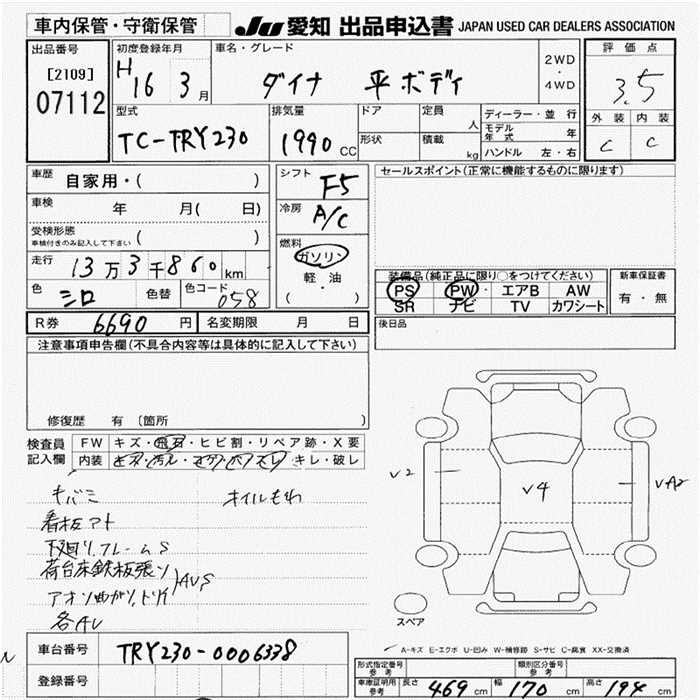 車内保管・守衛保管
JU 愛知 出品申込書 JAPAN USED CAR DEALERS ASSOCIATION
出品番号
[2109]
07112
初度登録年月
H 16 3 月
車名・グレード
ダイナ 平ボディ
2WD
・
4WD
評価点
3.5
外装 内装
C C
型式
TC-TRY230
排気量
1990 CC
ドア
形状
定員
人
積載
kg
ディーラー・並行
モデル年式 年
ハンドル 左・右
車歴 自家用・( )
車検 年 月( 日)
受検形態
車検付きのみ記入して下さい ( )
走行 13万3千860km
色 シロ 色替
色コード 058
シフト F5
冷房 A/C
燃料
ガソリン
・
軽・油
( ・ )
セールスポイント(正常に機能するものに限ります)
装備品(純正品に限り○をつけてください)
PS PW・ エアB AW
SR ナビ TV カワシート
新車保証書
有・無
R券 6690 円 名変期限 月 日
後日品
注意事項申告欄(不具合内容等は具体的に記入して下さい)
修復歴 有 〔箇所 〕
検査員
記入欄
FW キズ・飛石・ヒビ割・リペア跡・X要
内装 キズ・汚レ・コゲ・穴・スレ・キレ・破レ
キバミ オイルもれ
看板アト
下回り、フレームS
荷台床鉄板張リ
アオリ曲がリ、ドリ穴
AU,S
各AU
V2
V4
VA2
スペア
A-キズ E-エクボ U-凹み W-補修跡 S-サビ C-腐食 XX-交換済
車台番号 TRY230-0006338
登録番号
形式指定番号
参考
類別区分番号
参考
車庫証明用
参考
長さ 469 cm 幅 170 cm 高さ 194 cm